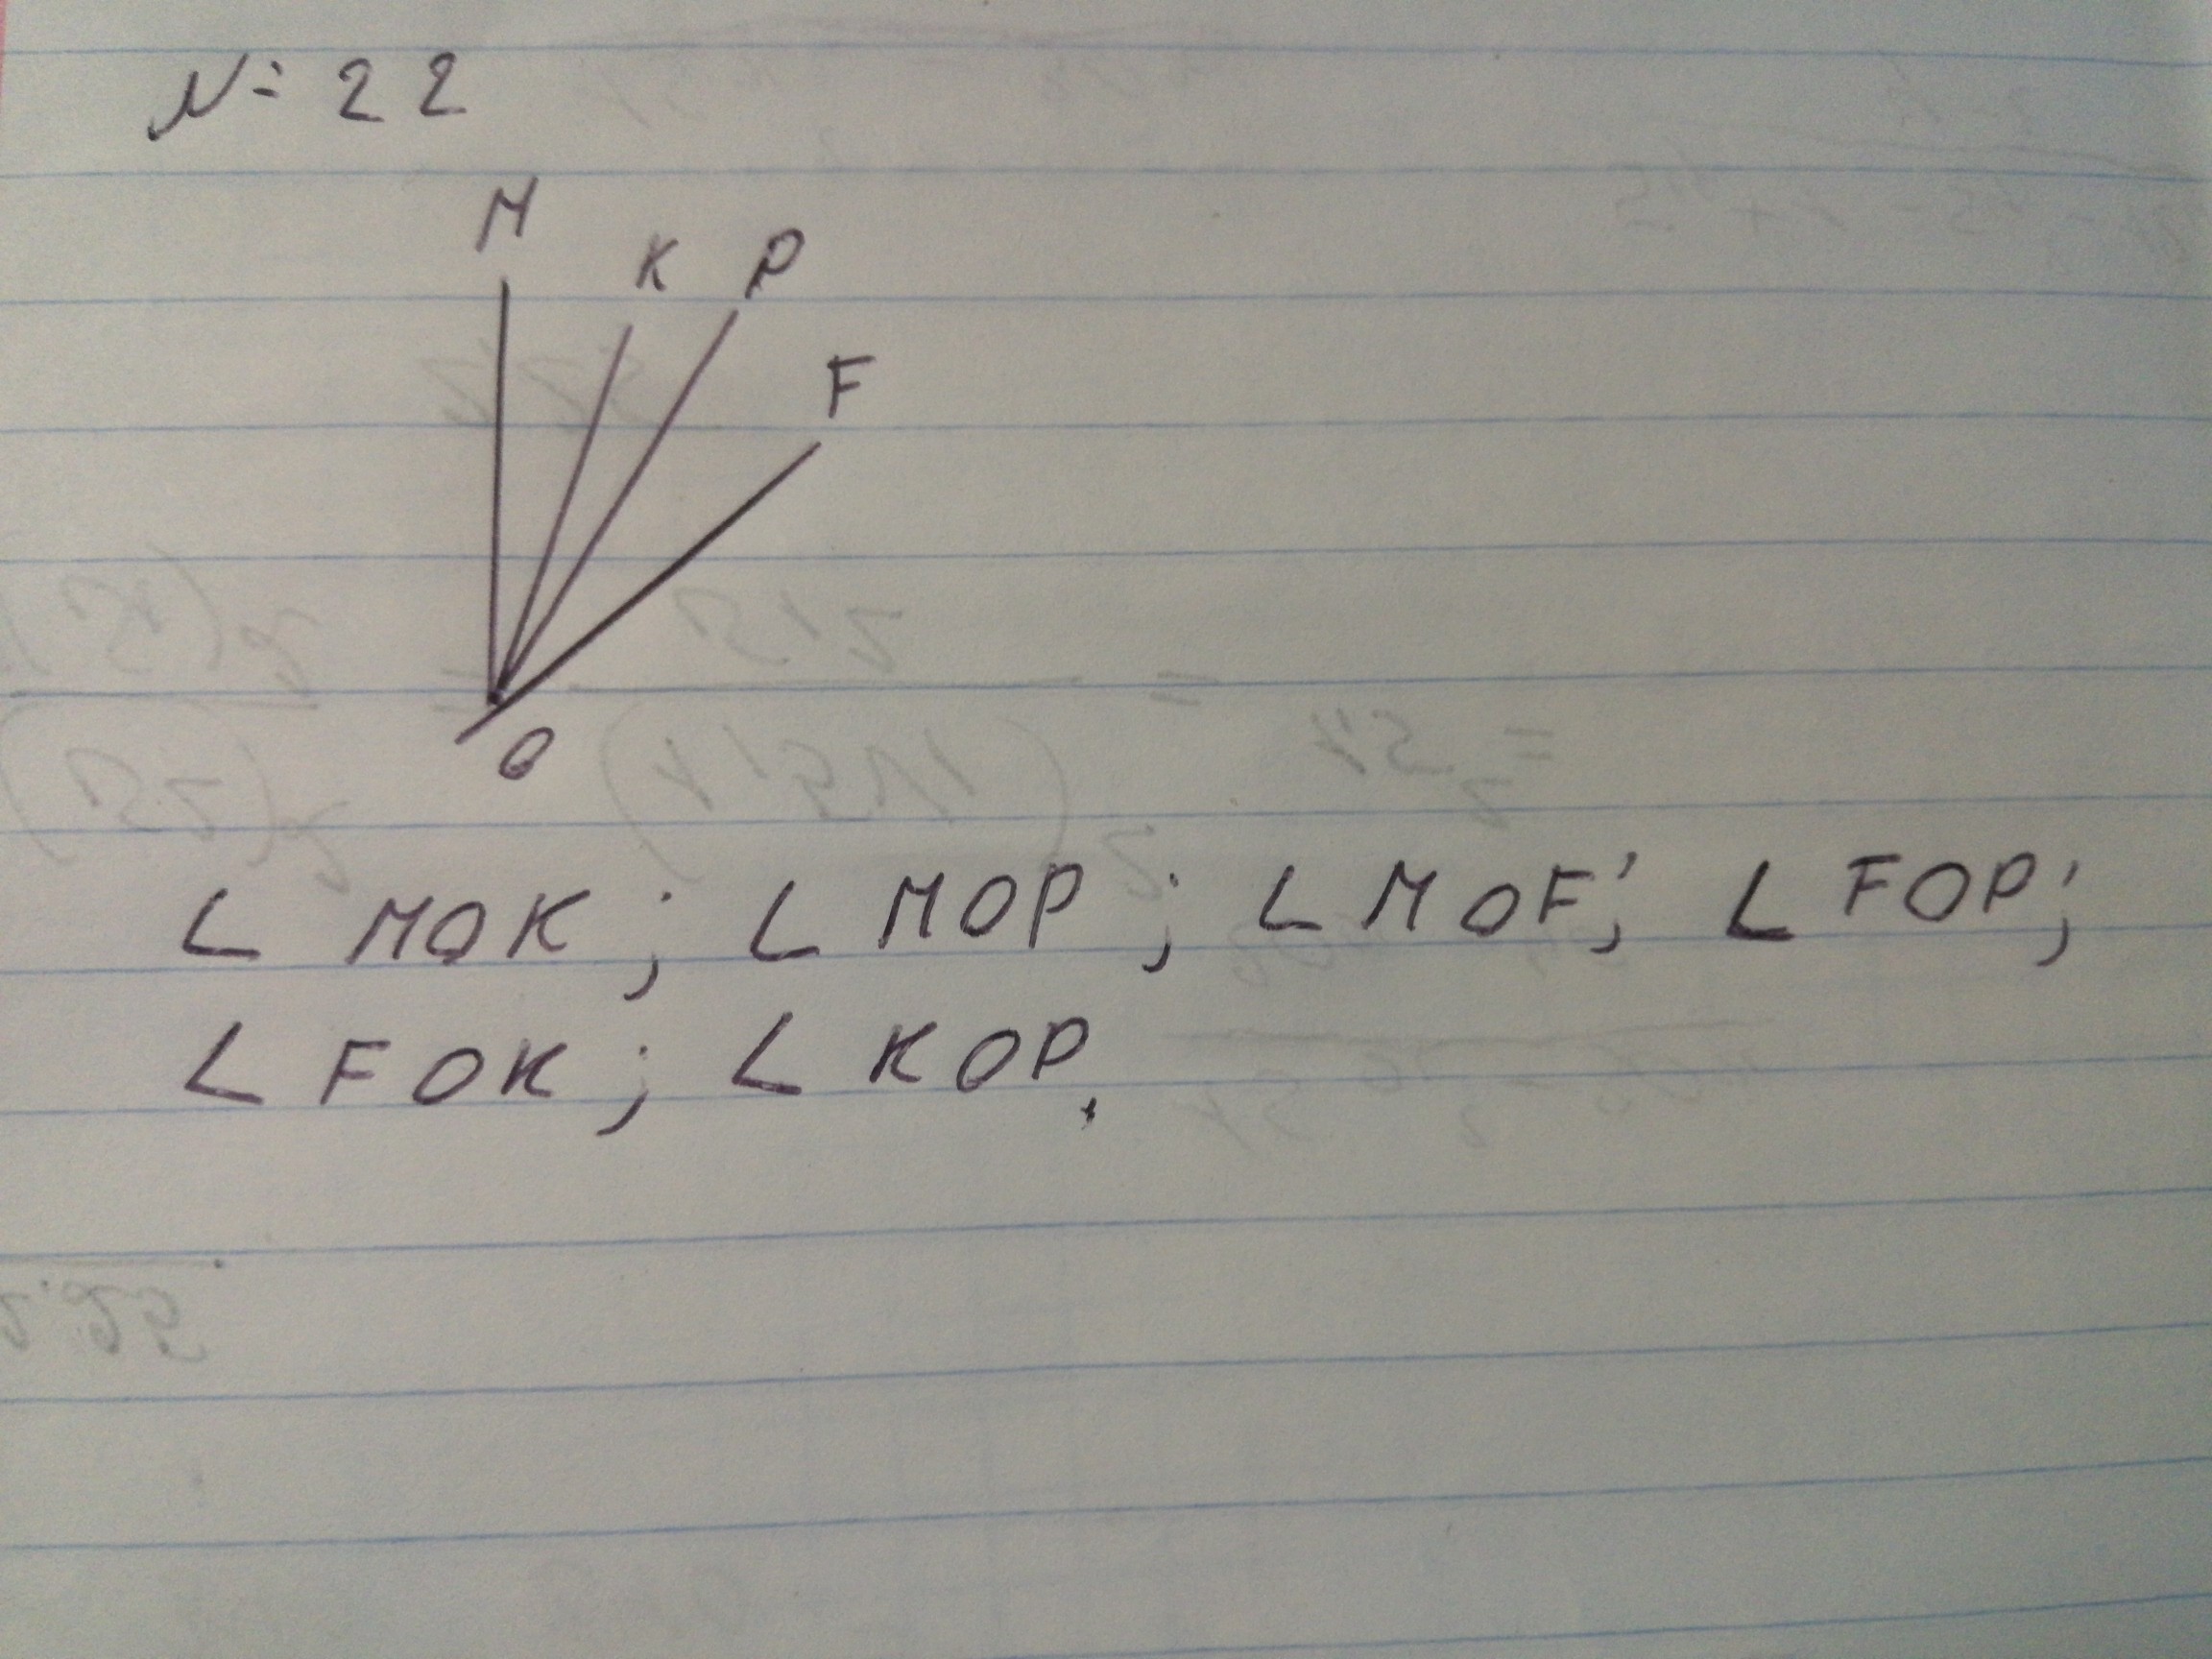 N: 22
M
K P
F
O
∠ MOK; ∠ MOP; ∠ MOF; ∠ FOP;
∠ FOK; ∠ KOP.